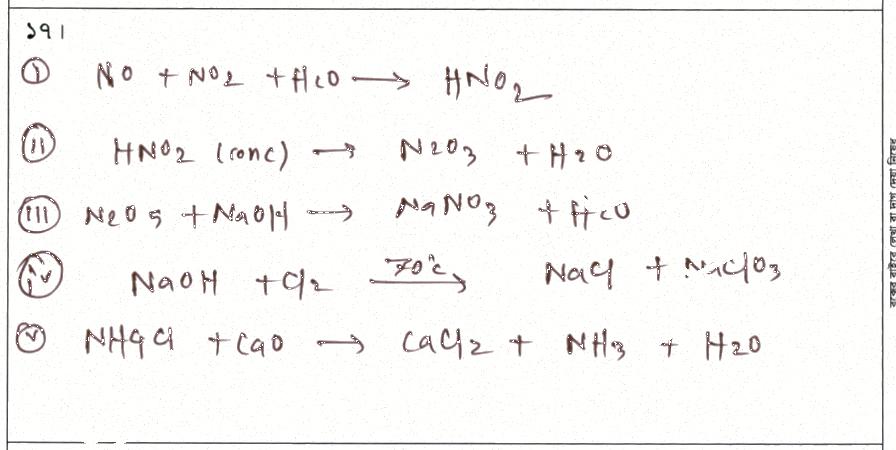 ১৭।
(i) NO + NO2 + H2O → HNO2
(ii) HNO2 (conc) → N2O3 + H2O
(iii) N2O5 + NaOH → NaNO3 + H2O
(iv) NaOH + Cl2 70°c → NaCl + NaClO3
(v) NH4Cl + CaO → CaCl2 + NH3 + H2O